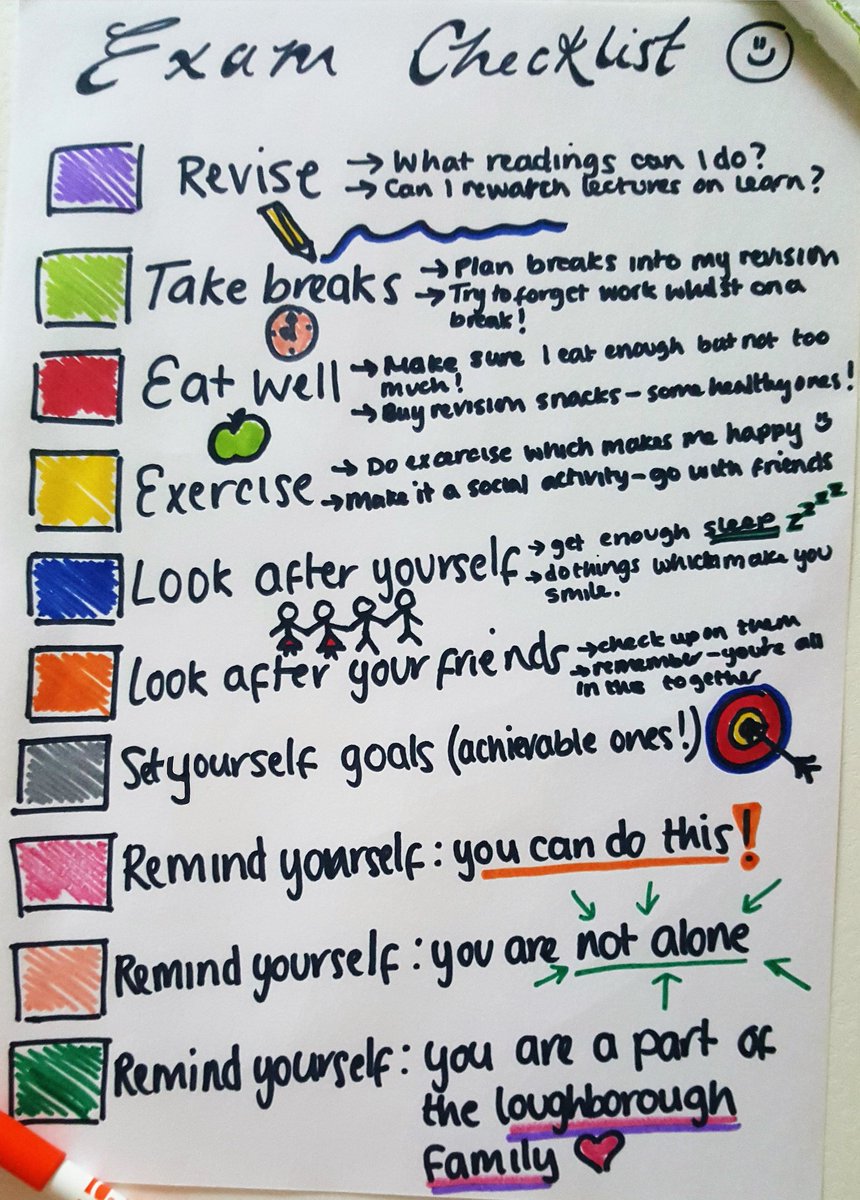 Exam Checklist
Revise → What readings can I do?
→ Can I rewatch lectures on Learn?
Take breaks → Plan breaks into my revision
→ Try to forget work whilst on a
break!
Eat well → Make sure I eat enough but not too
much!
→ Buy revision snacks - some healthy ones!
Exercise → Do exercise which makes me happy
→ Make it a social activity - go with friends
Look after yourself → get enough sleep zzzzz
→ do things which make you
smile.
Look after your friends → check up on them
→ remember - you're all
in this together
Set yourself goals (achievable ones!)
Remind yourself: you can do this!
Remind yourself: you are not alone
Remind yourself: you are a part of
the loughborough
family